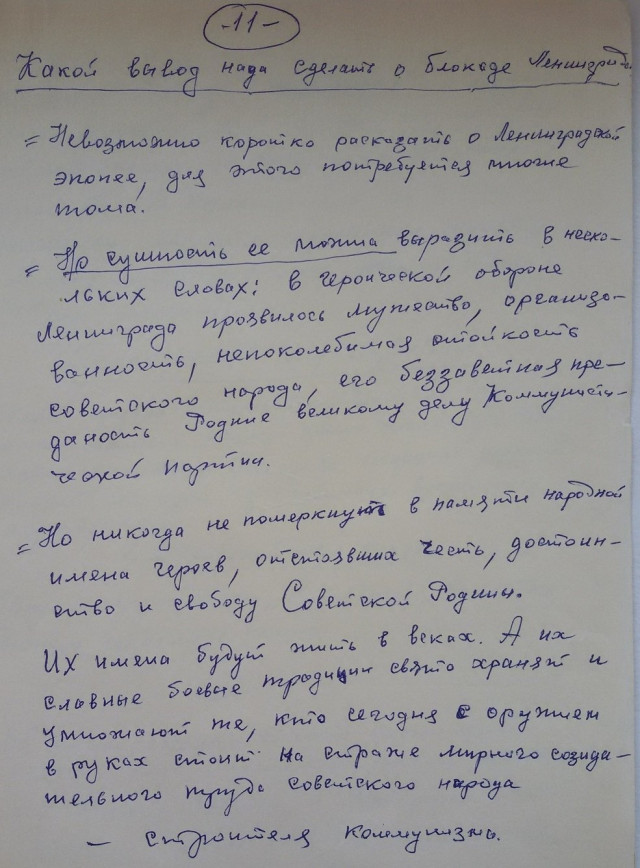 -11-
Какой вывод нада сделать о блокаде Ленинграда
= Невозможно коротко расказать о Ленинградской
эпопее, для этого потребуется многие
тома.
= Но сушность ее можна выразить в неско-
льких словах: в героической обороне
Ленинграда проявилось мужество, организо-
ванность, непоколебимая стойкость
советского народа, его беззаветная пре-
даность Родине великому делу Коммунисти-
ческой партии.
= Но никогда не померкнут в памяти народной
имена героев, отстоявших честь, достоин-
ство и свободу Советской Родины.
Их имена будут жить в веках. А их
славные боевые традиции свято хранят и
умножают те, кто сегодня с оружием
в руках стоит на страже мирного созида-
тельного труда советского народа
– строителя коммунизма.